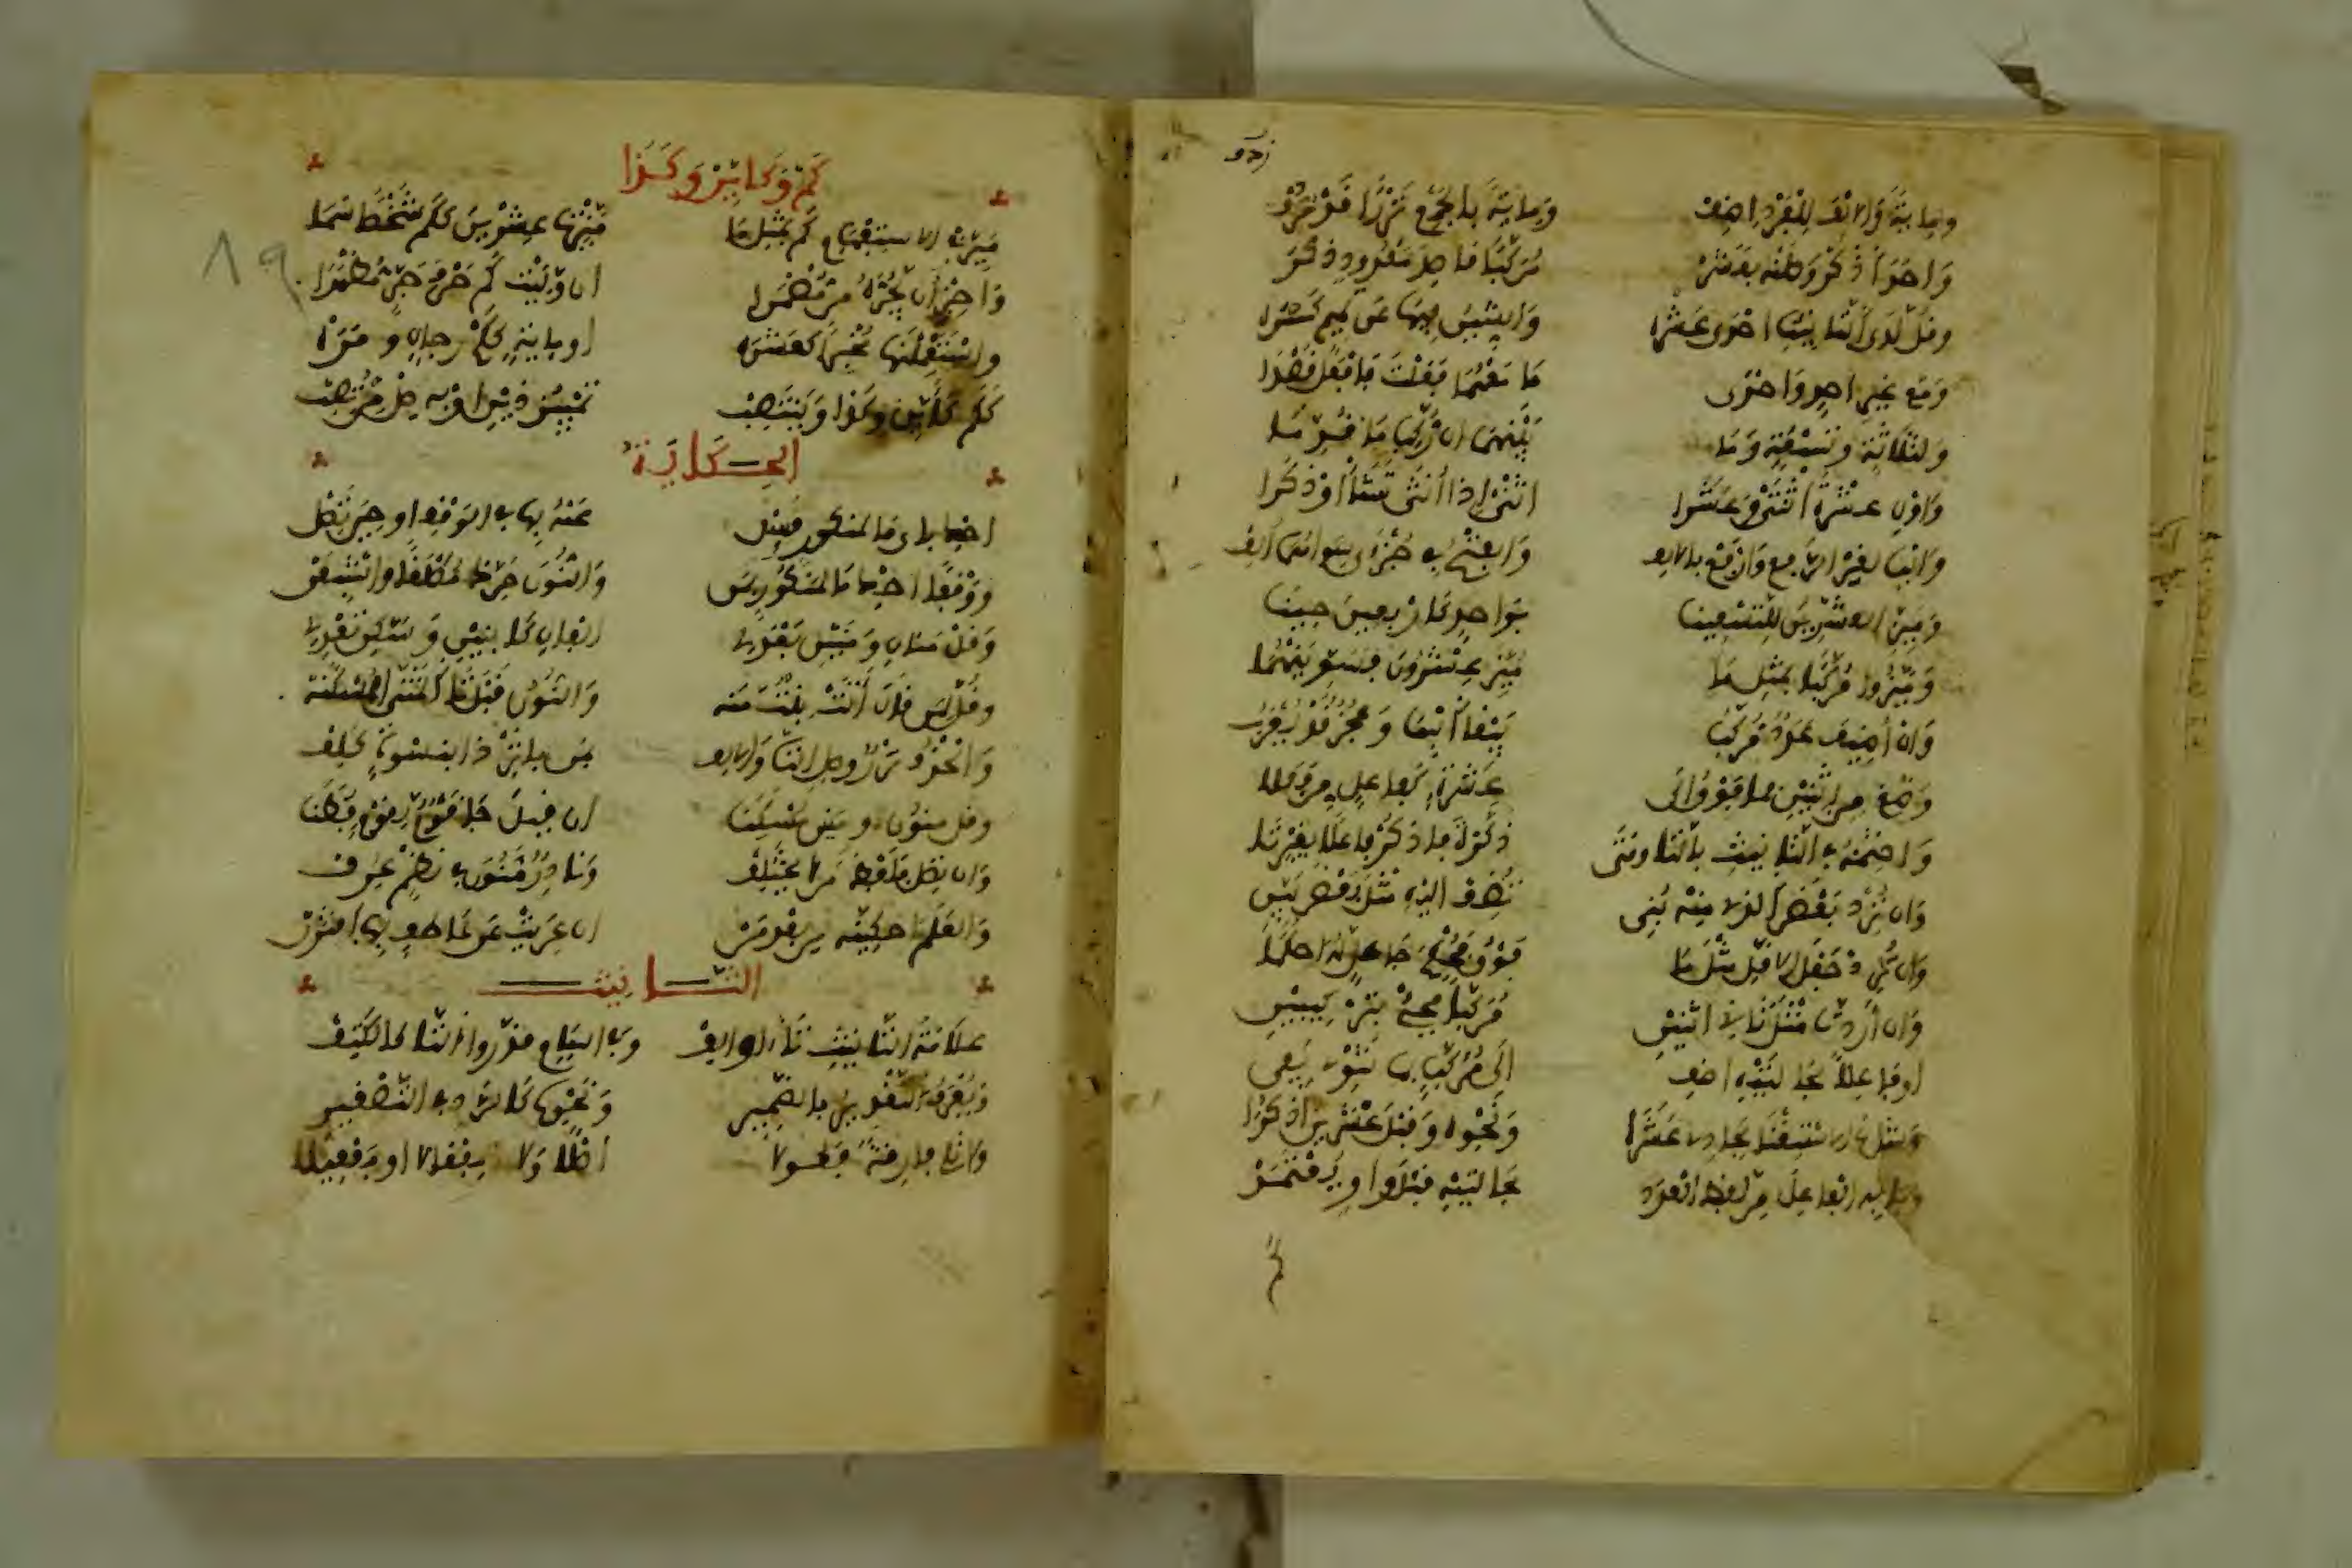 ومائة والألف للفرد أضف ومائة بالجمع نزرا قد ردف
وأحد اذكر وصلنه بعشر مركبا قاصد معدود ذكر
وقل لدى التأنيث إحدى عشره والشين فيها عن تميم كسره
ومع غير أحد وإحدى ما معهما فعلت فافعل قصدا
ولثلاثة وتسعة وما بينهما إن ركبا ما قدما
وأول عشرة اثنتي وعشرا اثني إذا أنثى تشا أو ذكرا
واليا لغير الرفع وارفع بالألف والفتح في جزأي سواهما ألف
وميز العشرين للتسعينا بواحد كأربعين حينا
وميزوا مركبا بمثل ما ميز عشرون فسوينهما
وإن أضيف عدد مركب يبقى البنا وعجز قد يعرب
وصغ من اثنين فما فوق إلى عشرة كفاعل من فعلا
واختمه في التأنيث بالتا ومتى ذكرت فاذكر فاعلا بغير تا
وإن ترد بعض الذي منه بني تضف إليه مثل بعض بين
وإن ترد جعل الأقل مثل ما فوق فحكم جاعل له احكما
وإن أردت مثل ثاني اثنين مركبا فجئ بتركيبين
أو فاعلا بحالتيه أضف إلى مركب بما تنوي يفي
وشاع الاستغنا بحادي عشرا ونحوه وقبل عشرين اذكرا
وبابه الفاعل من لفظ العدد بحالتيه قبل واو يعتمد
كم
كم وكأين وكذا
ميز في الاستفهام كم بمثل ما ميزت عشرين ككم شخصا سما
وأجز ان تجره من مضمرا إن وليت كم حرف جر مظهرا
واستعملنها مخبرا كعشره أو مائة ككم رجال أو مره
ككم كأين وكذا وينتصب تمييز ذين أو به صل من تصب
الحكاية
احك بأي ما لمنكور سئل عنه بها في الوقف أو حين تصل
ووقفا احك ما لمنكور بمن والنون حرك مطلقا وأشبعن
وقل منان ومنين بعد لي إلفان بابنين وسكن تعدل
وقل لمن قال أتت بنت منه والنون قبل تا المثنى مسكنه
والفتح نزر وصل التا والألف بمن بإثر ذا بنسوة كلف
وقل منون ومنين مسكنا إن قيل جا قوم لقوم فطنا
وإن تصل فلفظ من لا يختلف ونادر منون في نظم عرف
والعلم احكينه من بعد من إن عريت من عاطف بها اقترن
التأنيث
علامة التأنيث تاء أو ألف وفي أسام قدروا التا كالكتف
ويعرف التقدير بالضمير ونحوه كالرد في التصغير
ولا تلي فارقة فعولا أصلا ولا المفعال والمفعيلا